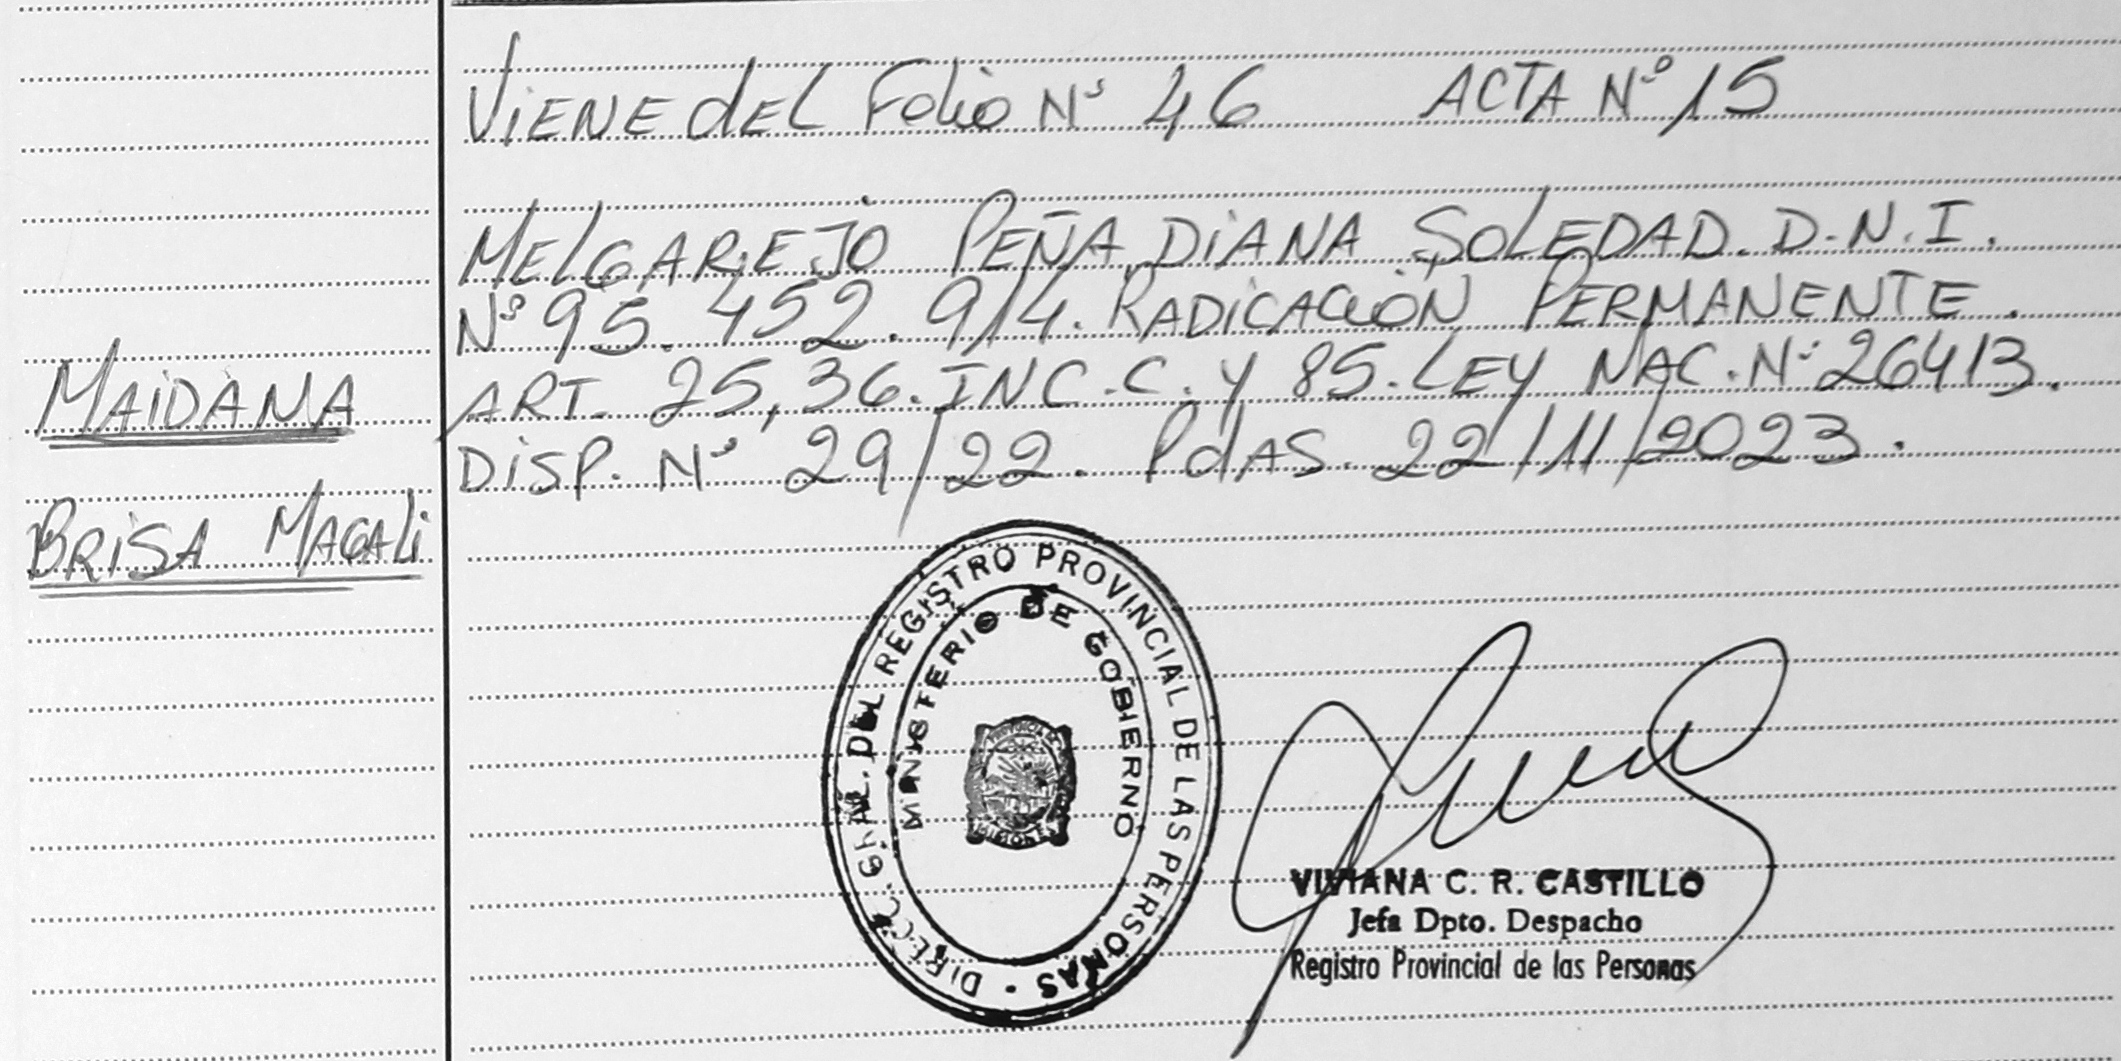 ViENE dEL Folio Nº 46 ACTA Nº 15
MELGAREJO PEÑA, DiANA SOLEDAD. D.N.I.
Nº 95.452.914. RADiCACiÓN PERMANENTE.
ART. 25, 36. INC. C. Y 85. LEY NAC. Nº 26413.
DiSP. Nº 29/22. PdAS. 22/11/2023.
MAiDANA
BRiSA MAGALi
DIRECC. GRAL. DEL REGISTRO PROVINCIAL DE LAS PERSONAS -
MINISTERIO DE GOBIERNO
VIVIANA C. R. CASTILLO
Jefa Dpto. Despacho
Registro Provincial de las Personas